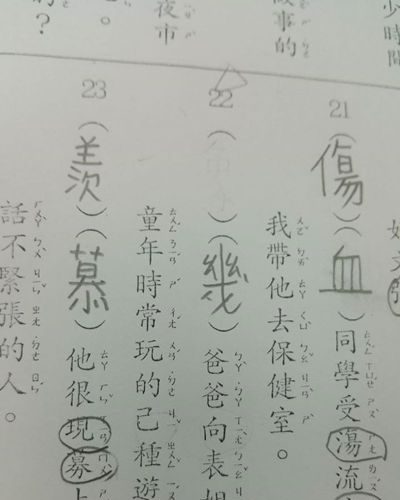 少時間
事的
夜市
。
？
21（傷）（血）同學受蕩流
我帶他去保健室。
22（）（幾）爸爸向表
童年時常玩的己種遊
23（羨）（慕）他很現募
話不緊張的人。